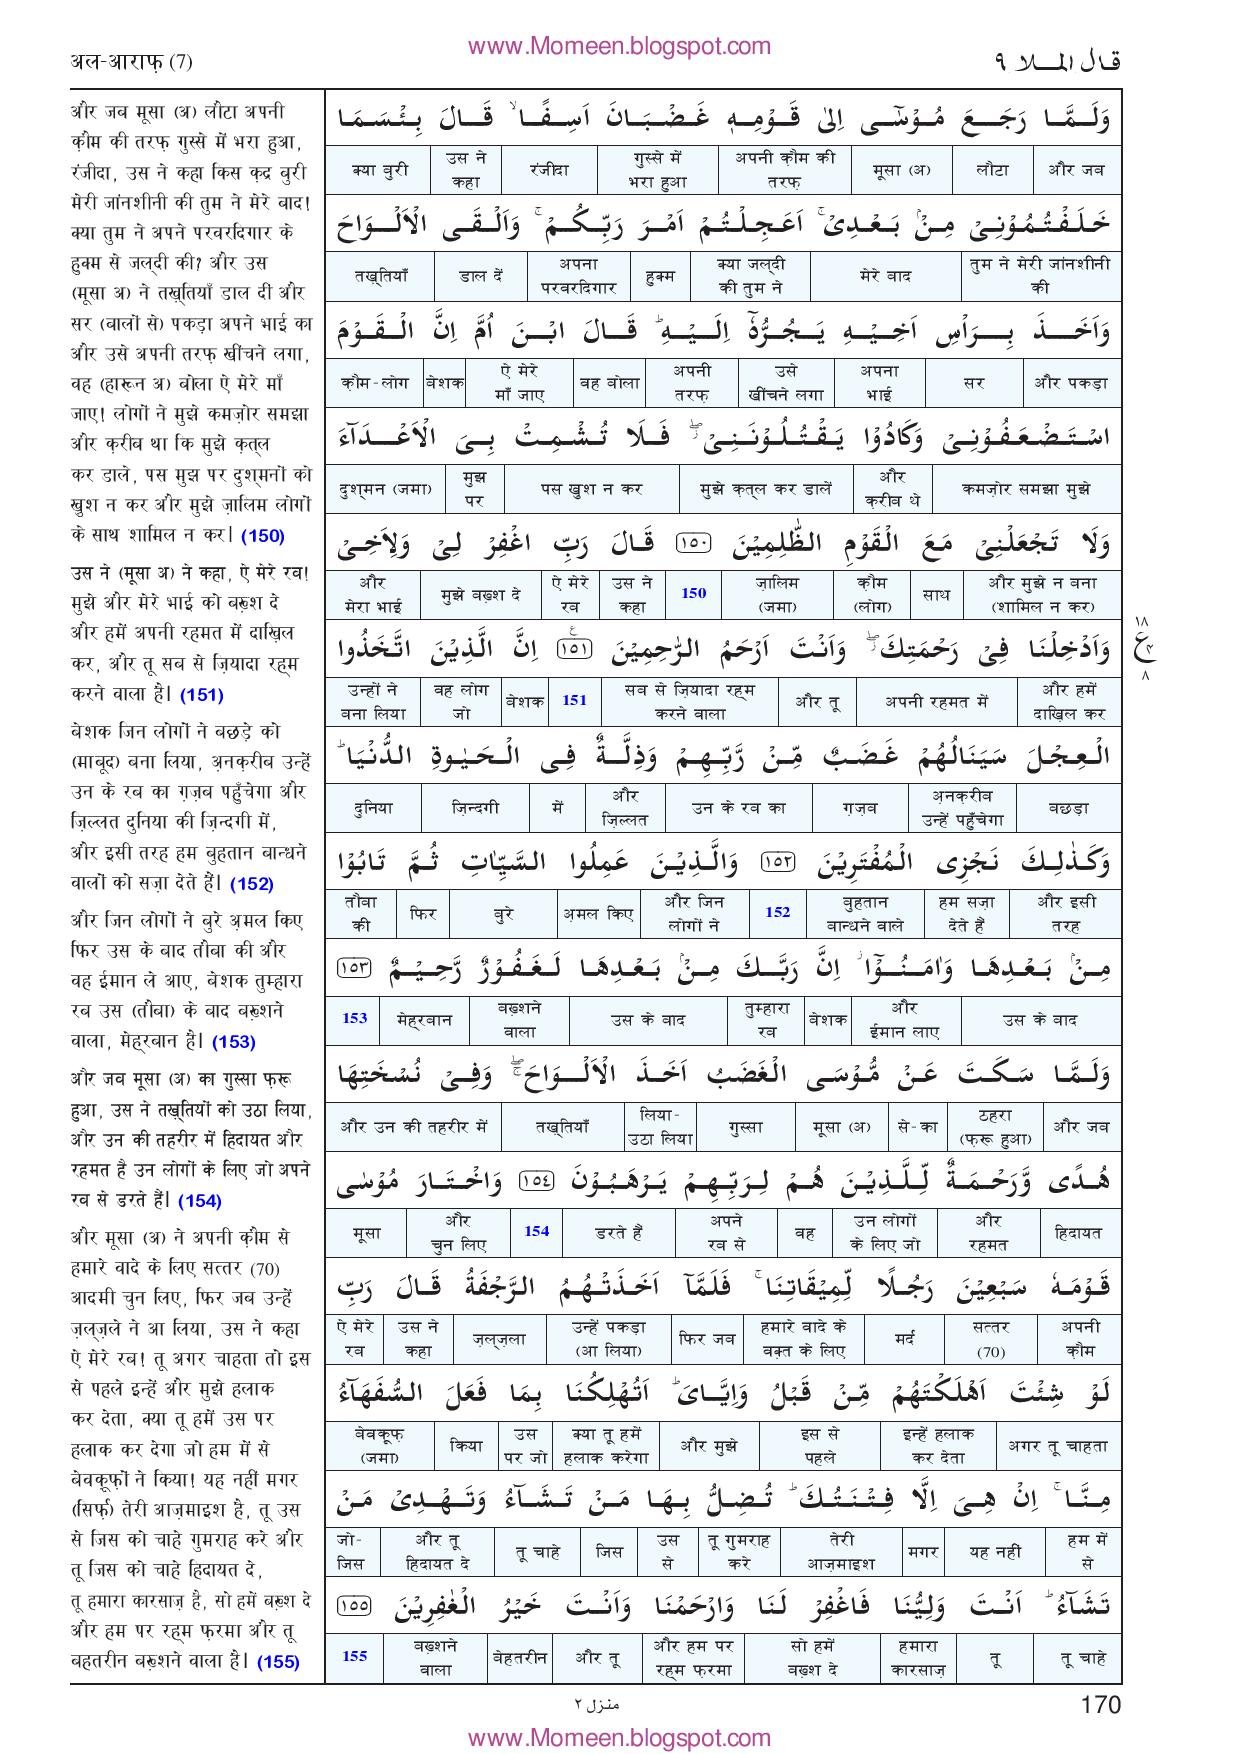 www.Momeen.blogspot.com
अल-आराफ़ (7)
قال الملا ٩
और जब मूसा (अ) लौटा अपनी
क़ौम की तरफ़ गुस्से में भरा हुआ,
रंजीदा, उस ने कहा किस क़द्र बुरी
मेरी जांनशीनी की तुम ने मेरे बाद!
क्या तुम ने अपने परवरदिगार के
हुक्म से जल्दी की? और उस
(मूसा अ) ने तख़्तियाँ डाल दी और
सर (बालों से) पकड़ा अपने भाई का
और उसे अपनी तरफ़ खींचने लगा,
वह (हारून अ) बोला ऐ मेरे माँ
जाए! लोगों ने मुझे कमज़ोर समझा
और क़रीब था कि मुझे क़त्ल
कर डाले, पस मुझ पर दुश्मनों को
खुश न कर और मुझे ज़ालिम लोगों
के साथ शामिल न कर। (150)
उस ने (मूसा अ) ने कहा, ऐ मेरे रब!
मुझे और मेरे भाई को बख़्श दे
और हमें अपनी रहमत में दाख़िल
कर, और तू सब से ज़ियादा रह्म
करने वाला है। (151)
बेशक जिन लोगों ने बछड़े को
(माबूद) बना लिया, अ़नक़रीब उन्हें
उन के रब का ग़ज़ब पहुँचेगा और
ज़िल्लत दुनिया की ज़िन्दगी में,
और इसी तरह हम बुहतान बान्धने
वालों को सज़ा देते हैं। (152)
और जिन लोगों ने बुरे अ़मल किए
फिर उस के बाद तौबा की और
वह ईमान ले आए, बेशक तुम्हारा
रब उस (तौबा) के बाद बख़्शने
वाला, मेह्रबान है। (153)
और जब मूसा (अ) का गुस्सा फ़रू
हुआ, उस ने तख़्तियों को उठा लिया,
और उन की तहरीर में हिदायत और
रहमत है उन लोगों के लिए जो अपने
रब से डरते हैं। (154)
और मूसा (अ) ने अपनी क़ौम से
हमारे वादे के लिए सत्तर (70)
आदमी चुन लिए, फिर जब उन्हें
ज़ल्ज़ले ने आ लिया, उस ने कहा
ऐ मेरे रब! तू अगर चाहता तो इस
से पहले इन्हें और मुझे हलाक
कर देता, क्या तू हमें उस पर
हलाक कर देगा जो हम में से
बेवकूफ़ों ने किया! यह नहीं मगर
(सिर्फ़) तेरी आज़माइश है, तू उस
से जिस को चाहे गुमराह करे और
तू जिस को चाहे हिदायत दे,
तू हमारा कारसाज़ है, सो हमें बख़्श दे
और हम पर रह्म फ़रमा और तू
बहतरीन बख़्शने वाला है। (155)
وَلَمَّا رَجَعَ مُوْسٰٓى اِلٰى قَوْمِهٖ غَضْبَانَ اَسِفًا ۙ قَالَ بِئْسَمَا
और जब लौटा मूसा (अ) अपनी क़ौम की तरफ़ गुस्से में भरा हुआ रंजीदा उस ने कहा क्या बुरी
خَلَفْتُمُوْنِىْ مِنْۢ بَعْدِىْ ۚ اَعَجِلْتُمْ اَمْرَ رَبِّكُمْ ۚ وَاَلْقَى الْاَلْوَاحَ
तुम ने मेरी जांनशीनी की मेरे बाद क्या जल्दी की तुम ने हुक्म अपना परवरदिगार डाल दें तख़्तियाँ
وَاَخَذَ بِرَاْسِ اَخِيْهِ يَجُرُّهٗٓ اِلَيْهِ ؕ قَالَ ابْنَ اُمَّ اِنَّ الْقَوْمَ
और पकड़ा सर अपना भाई उसे खींचने लगा अपनी तरफ़ वह बोला ऐ मेरे माँ जाए बेशक क़ौम-लोग
اسْتَضْعَفُوْنِىْ وَكَادُوْا يَقْتُلُوْنَنِىْ ۖ فَلَا تُشْمِتْ بِىَ الْاَعْدَآءَ
कमज़ोर समझा मुझे और क़रीब थे मुझे क़त्ल कर डालें पस खुश न कर मुझ पर दुश्मन (जमा)
وَلَا تَجْعَلْنِىْ مَعَ الْقَوْمِ الظّٰلِمِيْنَ ١٥٠ قَالَ رَبِّ اغْفِرْ لِىْ وَلِاَخِىْ
और मुझे न बना (शामिल न कर) साथ क़ौम (लोग) ज़ालिम (जमा) 150 उस ने कहा ऐ मेरे रब मुझे बख़्श दे और मेरा भाई
وَاَدْخِلْنَا فِىْ رَحْمَتِكَ ۖ وَاَنْتَ اَرْحَمُ الرّٰحِمِيْنَ ١٥١ اِنَّ الَّذِيْنَ اتَّخَذُوا
और हमें दाख़िल कर अपनी रहमत में और तू सब से ज़ियादा रह्म करने वाला 151 बेशक वह लोग जो उन्हों ने बना लिया
الْعِجْلَ سَيَنَالُهُمْ غَضَبٌ مِّنْ رَّبِّهِمْ وَذِلَّةٌ فِى الْحَيٰوةِ الدُّنْيَا ؕ
बछड़ा अ़नक़रीब उन्हें पहुँचेगा ग़ज़ब उन के रब का और ज़िल्लत में ज़िन्दगी दुनिया
وَكَذٰلِكَ نَجْزِى الْمُفْتَرِيْنَ ١٥٢ وَالَّذِيْنَ عَمِلُوا السَّيِّاٰتِ ثُمَّ تَابُوْا
और इसी तरह हम सज़ा देते हैं बुहतान बान्धने वाले 152 और जिन लोगों ने अ़मल किए बुरे फिर तौबा की
مِنْۢ بَعْدِهَا وَاٰمَنُوْٓا ۫ اِنَّ رَبَّكَ مِنْۢ بَعْدِهَا لَغَفُوْرٌ رَّحِيْمٌ ١٥٣
उस के बाद और ईमान लाए बेशक तुम्हारा रब उस के बाद बख़्शने वाला मेह्रबान 153
وَلَمَّا سَكَتَ عَنْ مُّوْسَى الْغَضَبُ اَخَذَ الْاَلْوَاحَ ۖۚ وَفِىْ نُسْخَتِهَا
और जब ठहरा (फ़रू हुआ) से-का मूसा (अ) गुस्सा लिया-उठा लिया तख़्तियाँ और उन की तहरीर में
هُدًى وَّرَحْمَةٌ لِّلَّذِيْنَ هُمْ لِرَبِّهِمْ يَرْهَبُوْنَ ١٥٤ وَاخْتَارَ مُوْسٰى
हिदायत और रहमत उन लोगों के लिए जो वह अपने रब से डरते हैं 154 और चुन लिए मूसा
قَوْمَهٗ سَبْعِيْنَ رَجُلًا لِّمِيْقَاتِنَا ۚ فَلَمَّآ اَخَذَتْهُمُ الرَّجْفَةُ قَالَ رَبِّ
अपनी क़ौम सत्तर (70) मर्द हमारे वादे के वक़्त के लिए फिर जब उन्हें पकड़ा (आ लिया) ज़ल्ज़ला उस ने कहा ऐ मेरे रब
لَوْ شِئْتَ اَهْلَكْتَهُمْ مِّنْ قَبْلُ وَاِيَّاىَ ؕ اَتُهْلِكُنَا بِمَا فَعَلَ السُّفَهَآءُ
अगर तू चाहता इन्हें हलाक कर देता इस से पहले और मुझे क्या तू हमें हलाक करेगा उस पर जो किया बेवकूफ़ (जमा)
مِنَّا ۚ اِنْ هِىَ اِلَّا فِتْنَتُكَ ؕ تُضِلُّ بِهَا مَنْ تَشَآءُ وَتَهْدِىْ مَنْ
हम में से यह नहीं मगर तेरी आज़माइश तू गुमराह करे उस से जिस तू चाहे और तू हिदायत दे जो-जिस
تَشَآءُ ؕ اَنْتَ وَلِيُّنَا فَاغْفِرْ لَنَا وَارْحَمْنَا وَاَنْتَ خَيْرُ الْغٰفِرِيْنَ ١٥٥
तू चाहे तू हमारा कारसाज़ सो हमें बख़्श दे और हम पर रह्म फ़रमा और तू बेहतरीन बख़्शने वाला 155
١٨
ع
٤
٨
منزل ٢
170
www.Momeen.blogspot.com